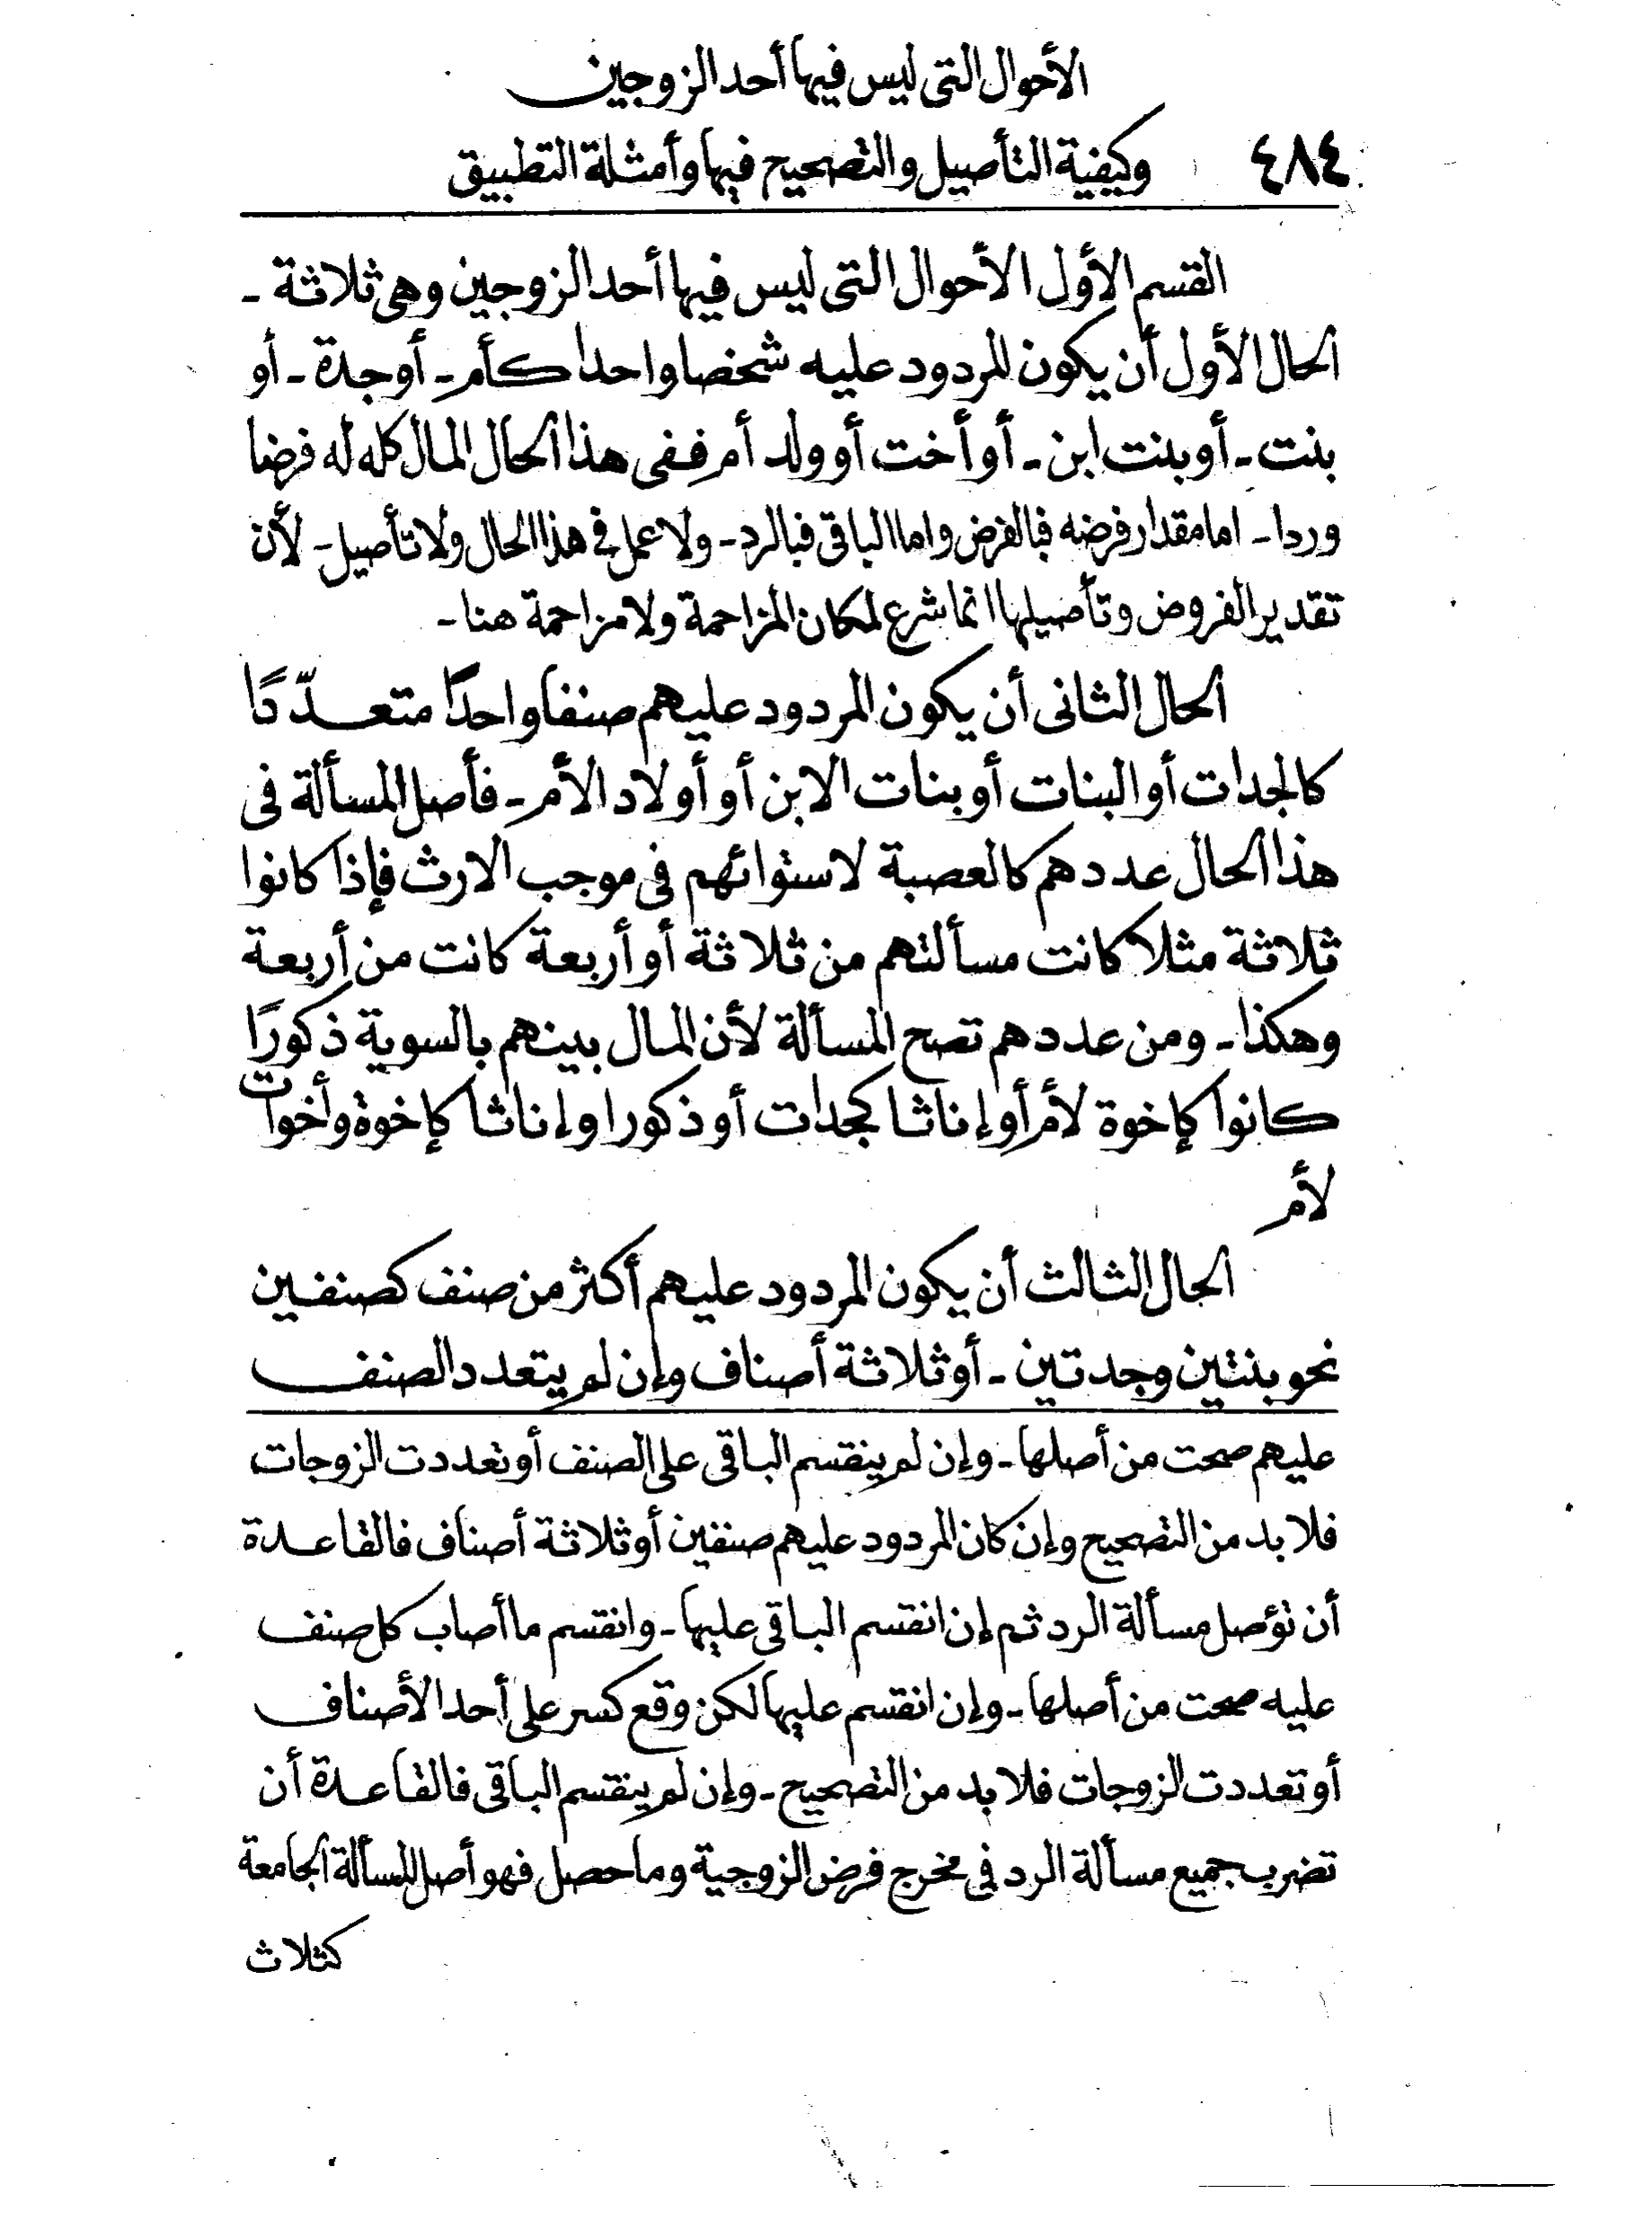 الأحوال التى ليس فيها أحد الزوجين
٤٨٤ وكيفية التأصيل والتصحيح فيها وأمثلة التطبيق
القسم الأول الأحوال التى ليس فيها أحد الزوجين وهى ثلاثة -
الحال الأول أن يكون المردود عليه شخصا واحدا كأم - أو جدة - أو
بنت - أو بنت ابن - أو أخت أو ولد أم ففى هذا الحال المال كله له فرضا
وردا - اما مقدار فرضه فبالفرض واما الباقى فبالرد - ولا عمل فى هذا الحال ولا تأصيل - لأن
تقدير الفروض وتأصيلها انما شرع لمكان المزاحمة ولا مزاحمة هنا -
الحال الثانى أن يكون المردود عليهم صنفا واحدًا متعدّدًا
كالجدات أو البنات أو بنات الابن أو أولاد الأم - فأصل المسألة فى
هذا الحال عددهم كالعصبة لاستوائهم فى موجب الارث فإذا كانوا
ثلاثة مثلا كانت مسألتهم من ثلاثة أو أربعة كانت من أربعة
وهكذا - ومن عددهم تصح المسألة لأن المال بينهم بالسوية ذكورًا
كانوا كإخوة لأم أو إناثا كجدات أو ذكورا وإناثا كإخوة وأخوات
لأم
الحال الثالث أن يكون المردود عليهم أكثر من صنف كصنفين
نحو بنتين وجدتين - أو ثلاثة أصناف وإن لم يتعدد الصنف
عليهم صحت من أصلها - وإن لم ينقسم الباقى على الصنف أو تعددت الزوجات
فلا بد من التصحيح وإن كان المردود عليهم صنفين أو ثلاثة أصناف فالقاعدة
أن تؤصل مسألة الرد ثم إن انقسم الباقى عليها - وانقسم ما أصاب كل صنف
عليه صحت من أصلها - وإن انقسم عليها لكن وقع كسر على أحد الأصناف
أو تعددت الزوجات فلا بد من التصحيح - وإن لم ينقسم الباقى فالقاعدة أن
تضرب جميع مسألة الرد فى مخرج فرض الزوجية وما حصل فهو أصل المسألة الجامعة
كثلاث